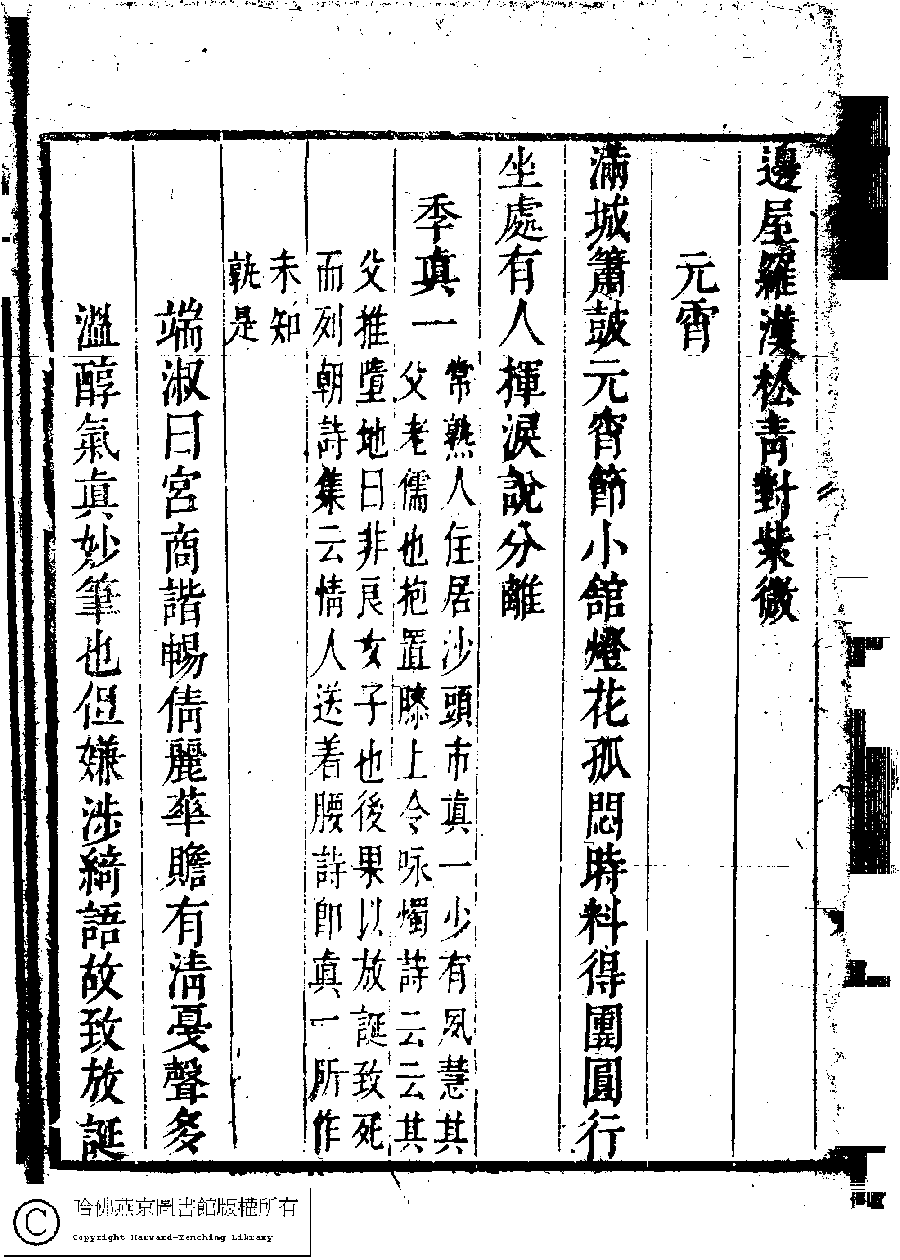 邊屋羅漢松青對紫薇
元宵
滿城簫鼓元宵節小舘燈花孤悶時料得團圓行
坐處有人揮淚說分離
季真一
常熟人住居沙頭市真一少有夙慧其
父老儒也抱置膝上令咏燭詩云云其
父推墮地曰非良女子也後果以放誕致死
而列朝詩集云情人送着腰詩卽真一所作
未知
孰是
端淑曰宮商諧暢倩麗華贍有清戞聲多
溫醇氣真妙筆也但嫌涉綺語故致放誕
哈佛燕京圖書館版權所有
Copyright Harvard-Yenching Library